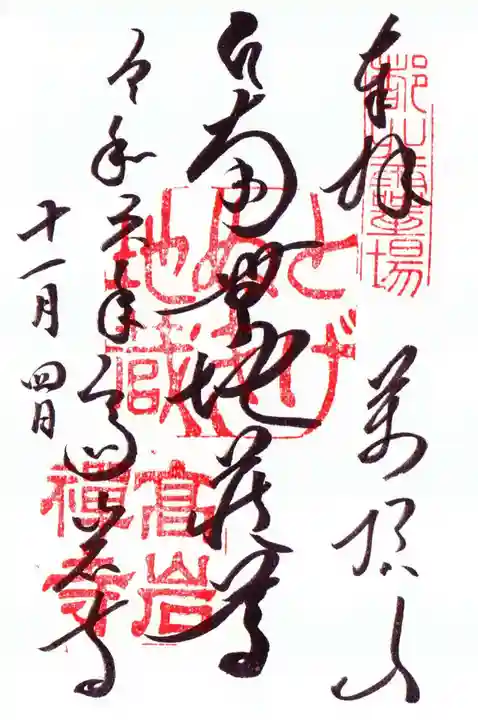 奉拝
萬頂山
南無地蔵尊
令和六年
十一月四日
高岩寺
とげ
ぬき
地蔵
高岩
禅寺